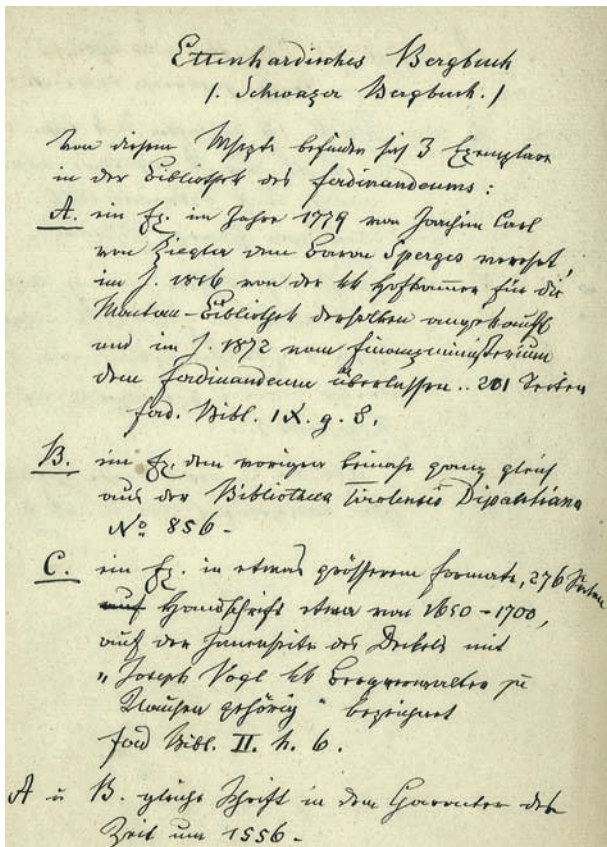 Ettenhardisches Bergbuch
/. Schwazer Bergbuch. /
Von diesem Mscpte befinden sich 3 Exemplare
in der Bibliothek des Ferdinandeums :
A. ein Ex. im Jahre 1779 von Joachim Carl
von Ziegler dem Baron Sperges verehrt,
im J. 1816 von der kk Hofkam̅er für die
Montan-Bibliothek derselben angekauft
und im J. 1872 vom Finanzministerium
dem Ferdinandeum überlassen .. 201 Seiten
Ferd. Bibl. IX. g. 8.
B. ein Ex. dem vorigen beinahe ganz gleich
aus der Bibliotheca Tirolensis Dipauliana
No 856 -
C. ein Ex. in etwas grösserem Formate, 276 Seiten
auf Handschrift etwa von 1650 - 1700,
auf der Innenseite des Deckels mit
„ Joseph Vogl kk Bergverwalter zu
Klausen gehörig " bezeichnet
Ferd Bibl. II. h. 6.
A u B. gleiche Schrift in dem Charakter der
Zeit um 1556 -